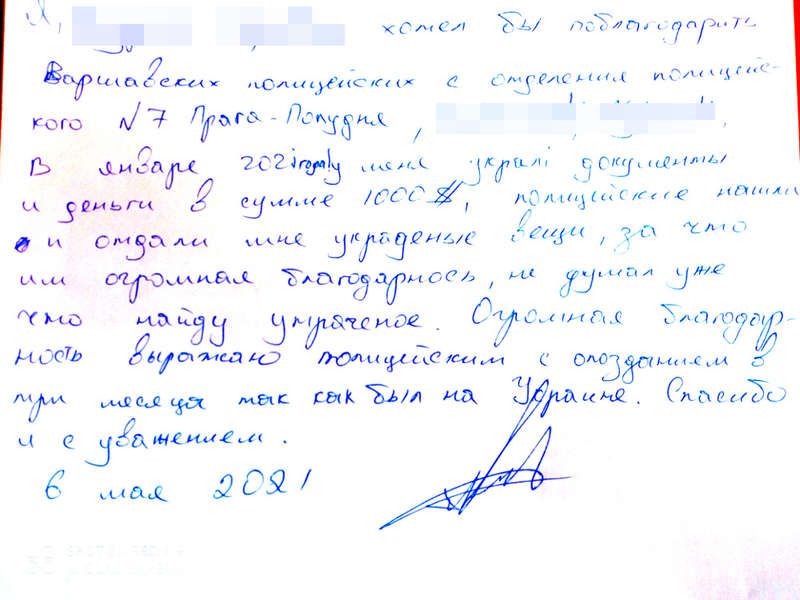 Я, хотел бы поблагодарить
Варшавских полицейских с отделения полицейс-
кого №7 Прага-Полудня, ,
В январе 2021 году меня украли документы
и деньги в сумме 1000$, полицейские нашли
и отдали мне украденые вещи, за что
им огромная благодарнось, не думал уже
что найду утраченое. Огромная благодар-
ность выражаю полицейским с опозданием в
три месяца так как был на Украине. Спасибо
и с уважением.
6 мая 2021